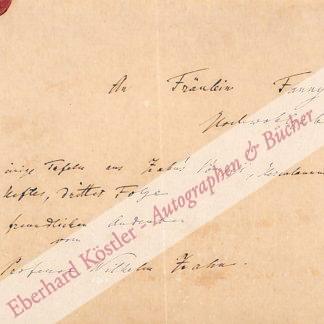 An Fräulein Fanny
Hochwohlgeb
einige Tafeln aus Zahn's Pompeji, Herculanum
Heftes, dritter Folge
freundlichen Andenken
von
Professor Wilhelm Zahn.
Eberhard Köstler - Autographen & Bücher